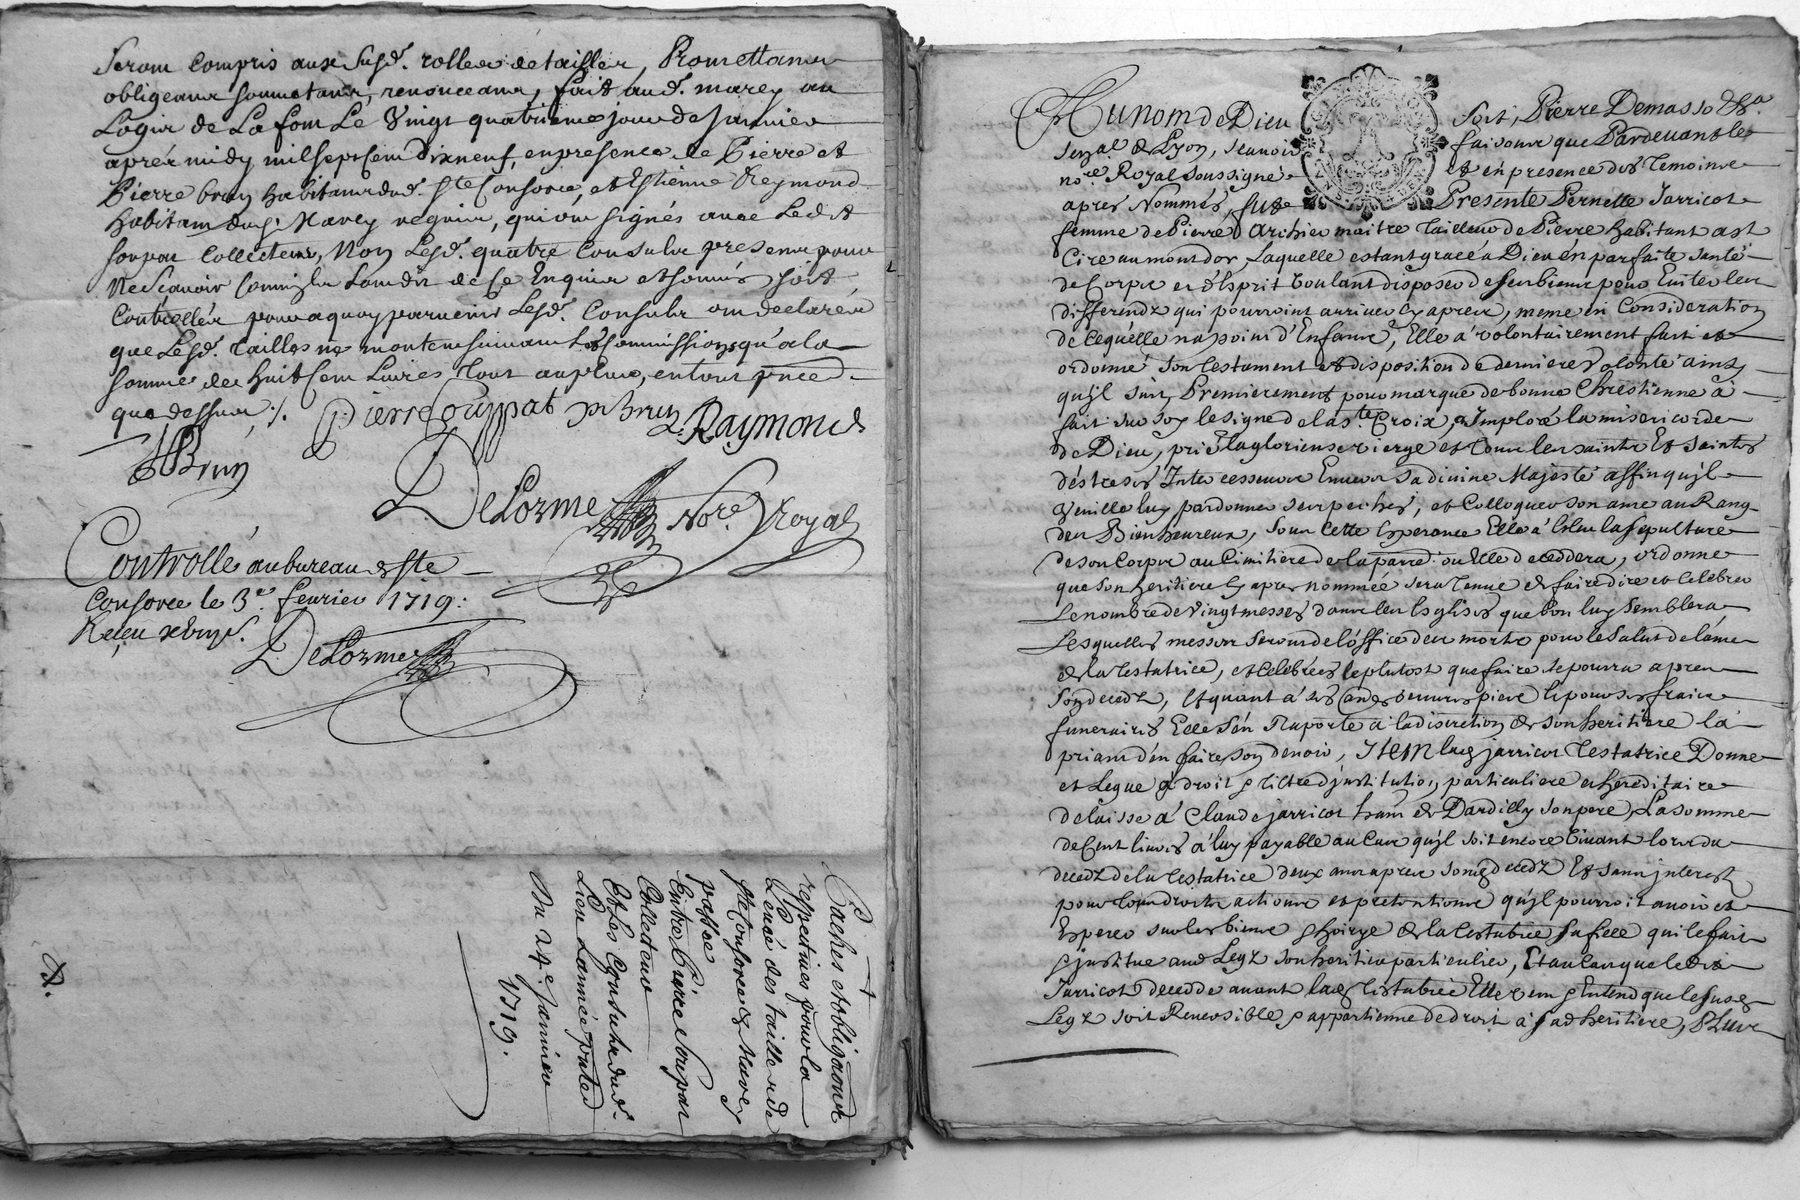 seront compris aux susd. rolles de tailles, Promettans
obligeans soumetans, renonceans, fait aud. marcy au
Logis de La font Le Vingt quatrieme jour de Janvier
apres midy, mil sept cent dixneuf, en presence de Pierre et
Pierre brun habitans dud. ste Consorce, et Estienne Reymond
habitant dud. Marcy requis, qui ont signés avec Ledit
souppat Collecteur, Non Lesd. quatre Consuls presens pour
Ne Scavoir
Controller pour a quoy parvenir Lesd. Consuls ont declarer
que Lesd. Tailles ne montent suivant Les Commissions qu'a la
somme de huit Cent Livres Tout au plus, en tout
que dessus ./.
Pierre Souppat p brun E. Raymond
Brun
DeLorme Nore. Royal
Controllé au bureau de ste
Consorce le 3e. fevrier 1719.
Receu
DeLorme
Baches et obligations
respectives pour la
Levée des tailles de
ste Consorce & Marcy
passée
Entre Pierre Soupat
Collecteur
Et Les Consuls dud.
Lieu Lannée
Du 24e. Janvier
1719.
Au nom de Dieu Soit, Pierre Demasso
senal. de Lyon, scavoir faisons que Pardevant les
nore. Royal soussigné et en presence des temoins
apres Nommés, fut Presente Pernette Jarricot
femme de Pierre Archier maitre Tailleur de Pierre habitant a st
Cire au mont dor, Laquelle estant grace a Dieu en parfaite santé
de Corps et d'Esprit Voulant disposer de ses biens pour Eviter les
differends qui pourroint arriver cy apres, meme en Consideration
de ce quelle na point d'Enfans, Elle a volontairement fait et
ordonné son testament et disposition de derniere volonté ainsy
qu'il suit, Premierement pour marque de bonne Chrestienne a
fait sur soy le signe de la ste. Croix, a Imploré la misericorde
de Dieu, prié la glorieuse vierge et tous les saints Et saintes
d'estre ses Intercesseurs Envers sa divine Majesté affin qu'il
Veuille luy pardonner ses pechés, et Colloquer son ame au Rang
des Bienheureux, sous cette Esperance Elle a Eslu la sepulture
de son Corps au Cimitiere de la parre. ou Elle decedera, ordonne
que son heritiere cy apres nommée sera tenue de faire dire et celebrer
Le nombre de vingt messes dans les Esglises que bon luy semblera
Lesquelles messes seront de l'office des morts pour le salut de l'ame
de la testatrice, et celebrées le plutost que faire se poura apres
son deced, Et quant a ses frais
funeraires Elle s'en Raporte a la discretion de son heritiere la
priant d'en faire son devoir, Item lad. jarricot Testatrice Donne
et Legue & droit & tiltre d'institution particuliere et hereditaire
delaisse a Claude jarricot habt. de Dardilly son pere, La somme
de Cent livres a luy payable au Cas qu'il soit encore vivant lors du
decedz de la testatrice deux ans apres son dt. decedz Et sans interest
pour tous droits actions et pretentions qu'il pourroit avoir et
Esperer sur les biens & hoirye de la testatrice sa fille qui le fait
& institue aud Legz son heritier particulier, Et au Cas que ledit
Jarricot decede avant lad. testatrice Elle veut & Entend que le susd.
Legz soit Reversible & appartienne de droit a sad heritiere, Plus